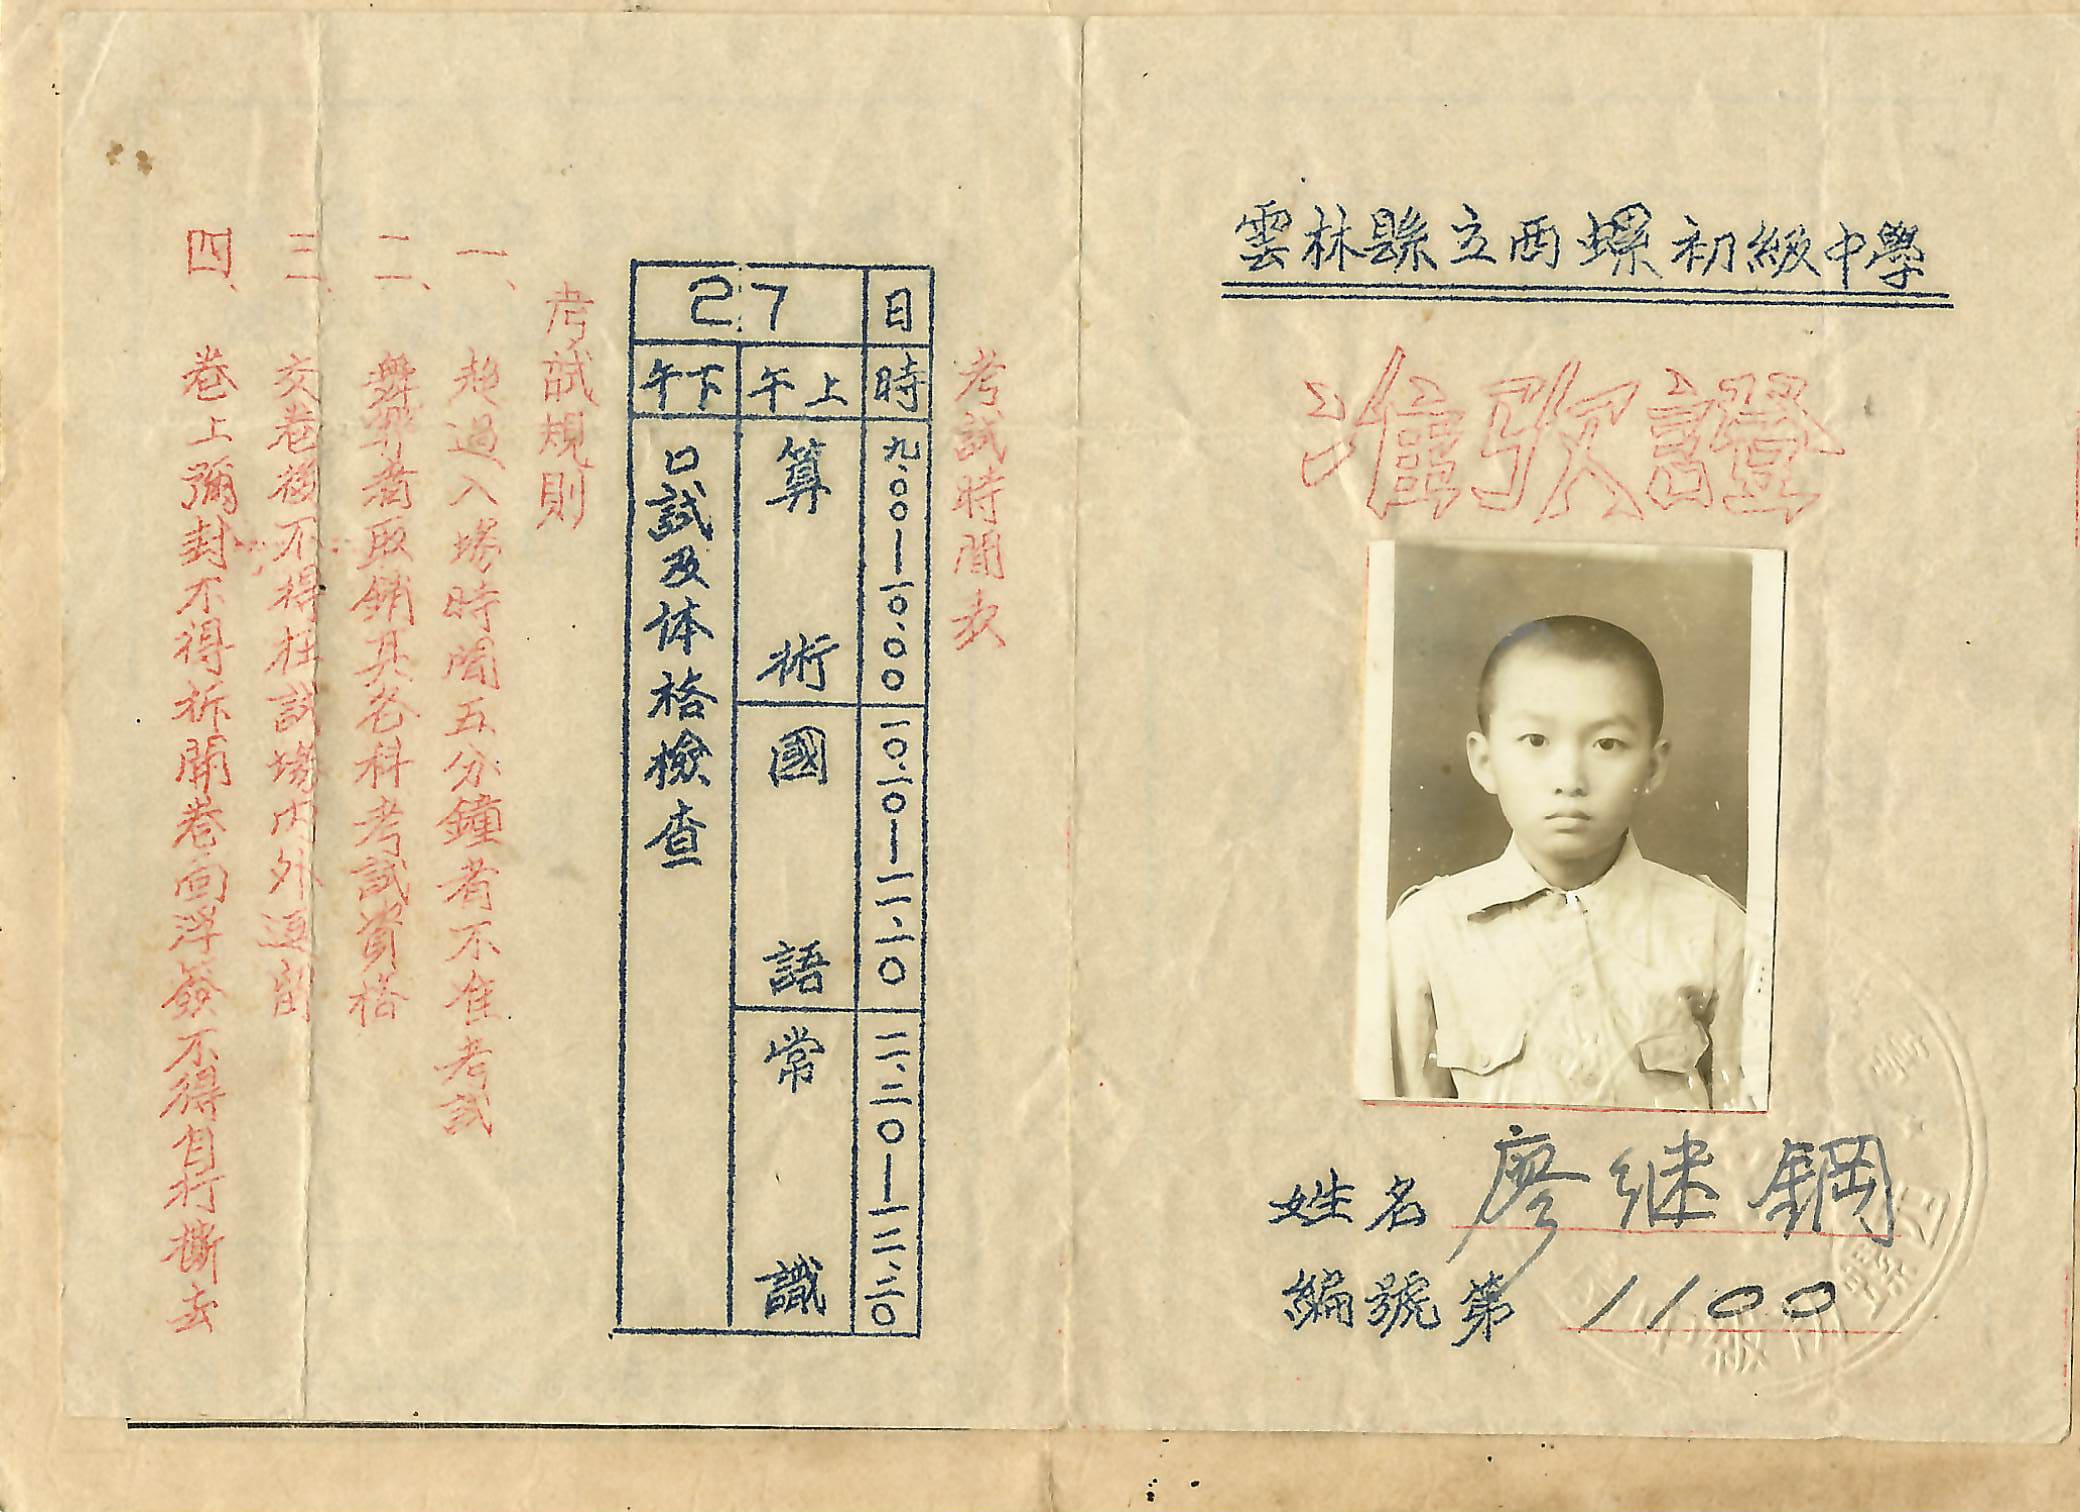 雲林縣立西螺初級中學
准攷證
姓名 廖继鋼
編號第 1100
考試時間表
日 27
時 上午 下午
九.00—一0.00 算術
一0.一0—一一.一0 國語
一一.二0—一二.二0 常識
口試及体格檢查
考試規則
一、超過入場時間五分鐘者不准考試
二、舞弊者取銷其各科考試資格
三、交卷後不得在試場內外逗留
四、卷上彌封不得拆開卷面浮簽不得自行撕去